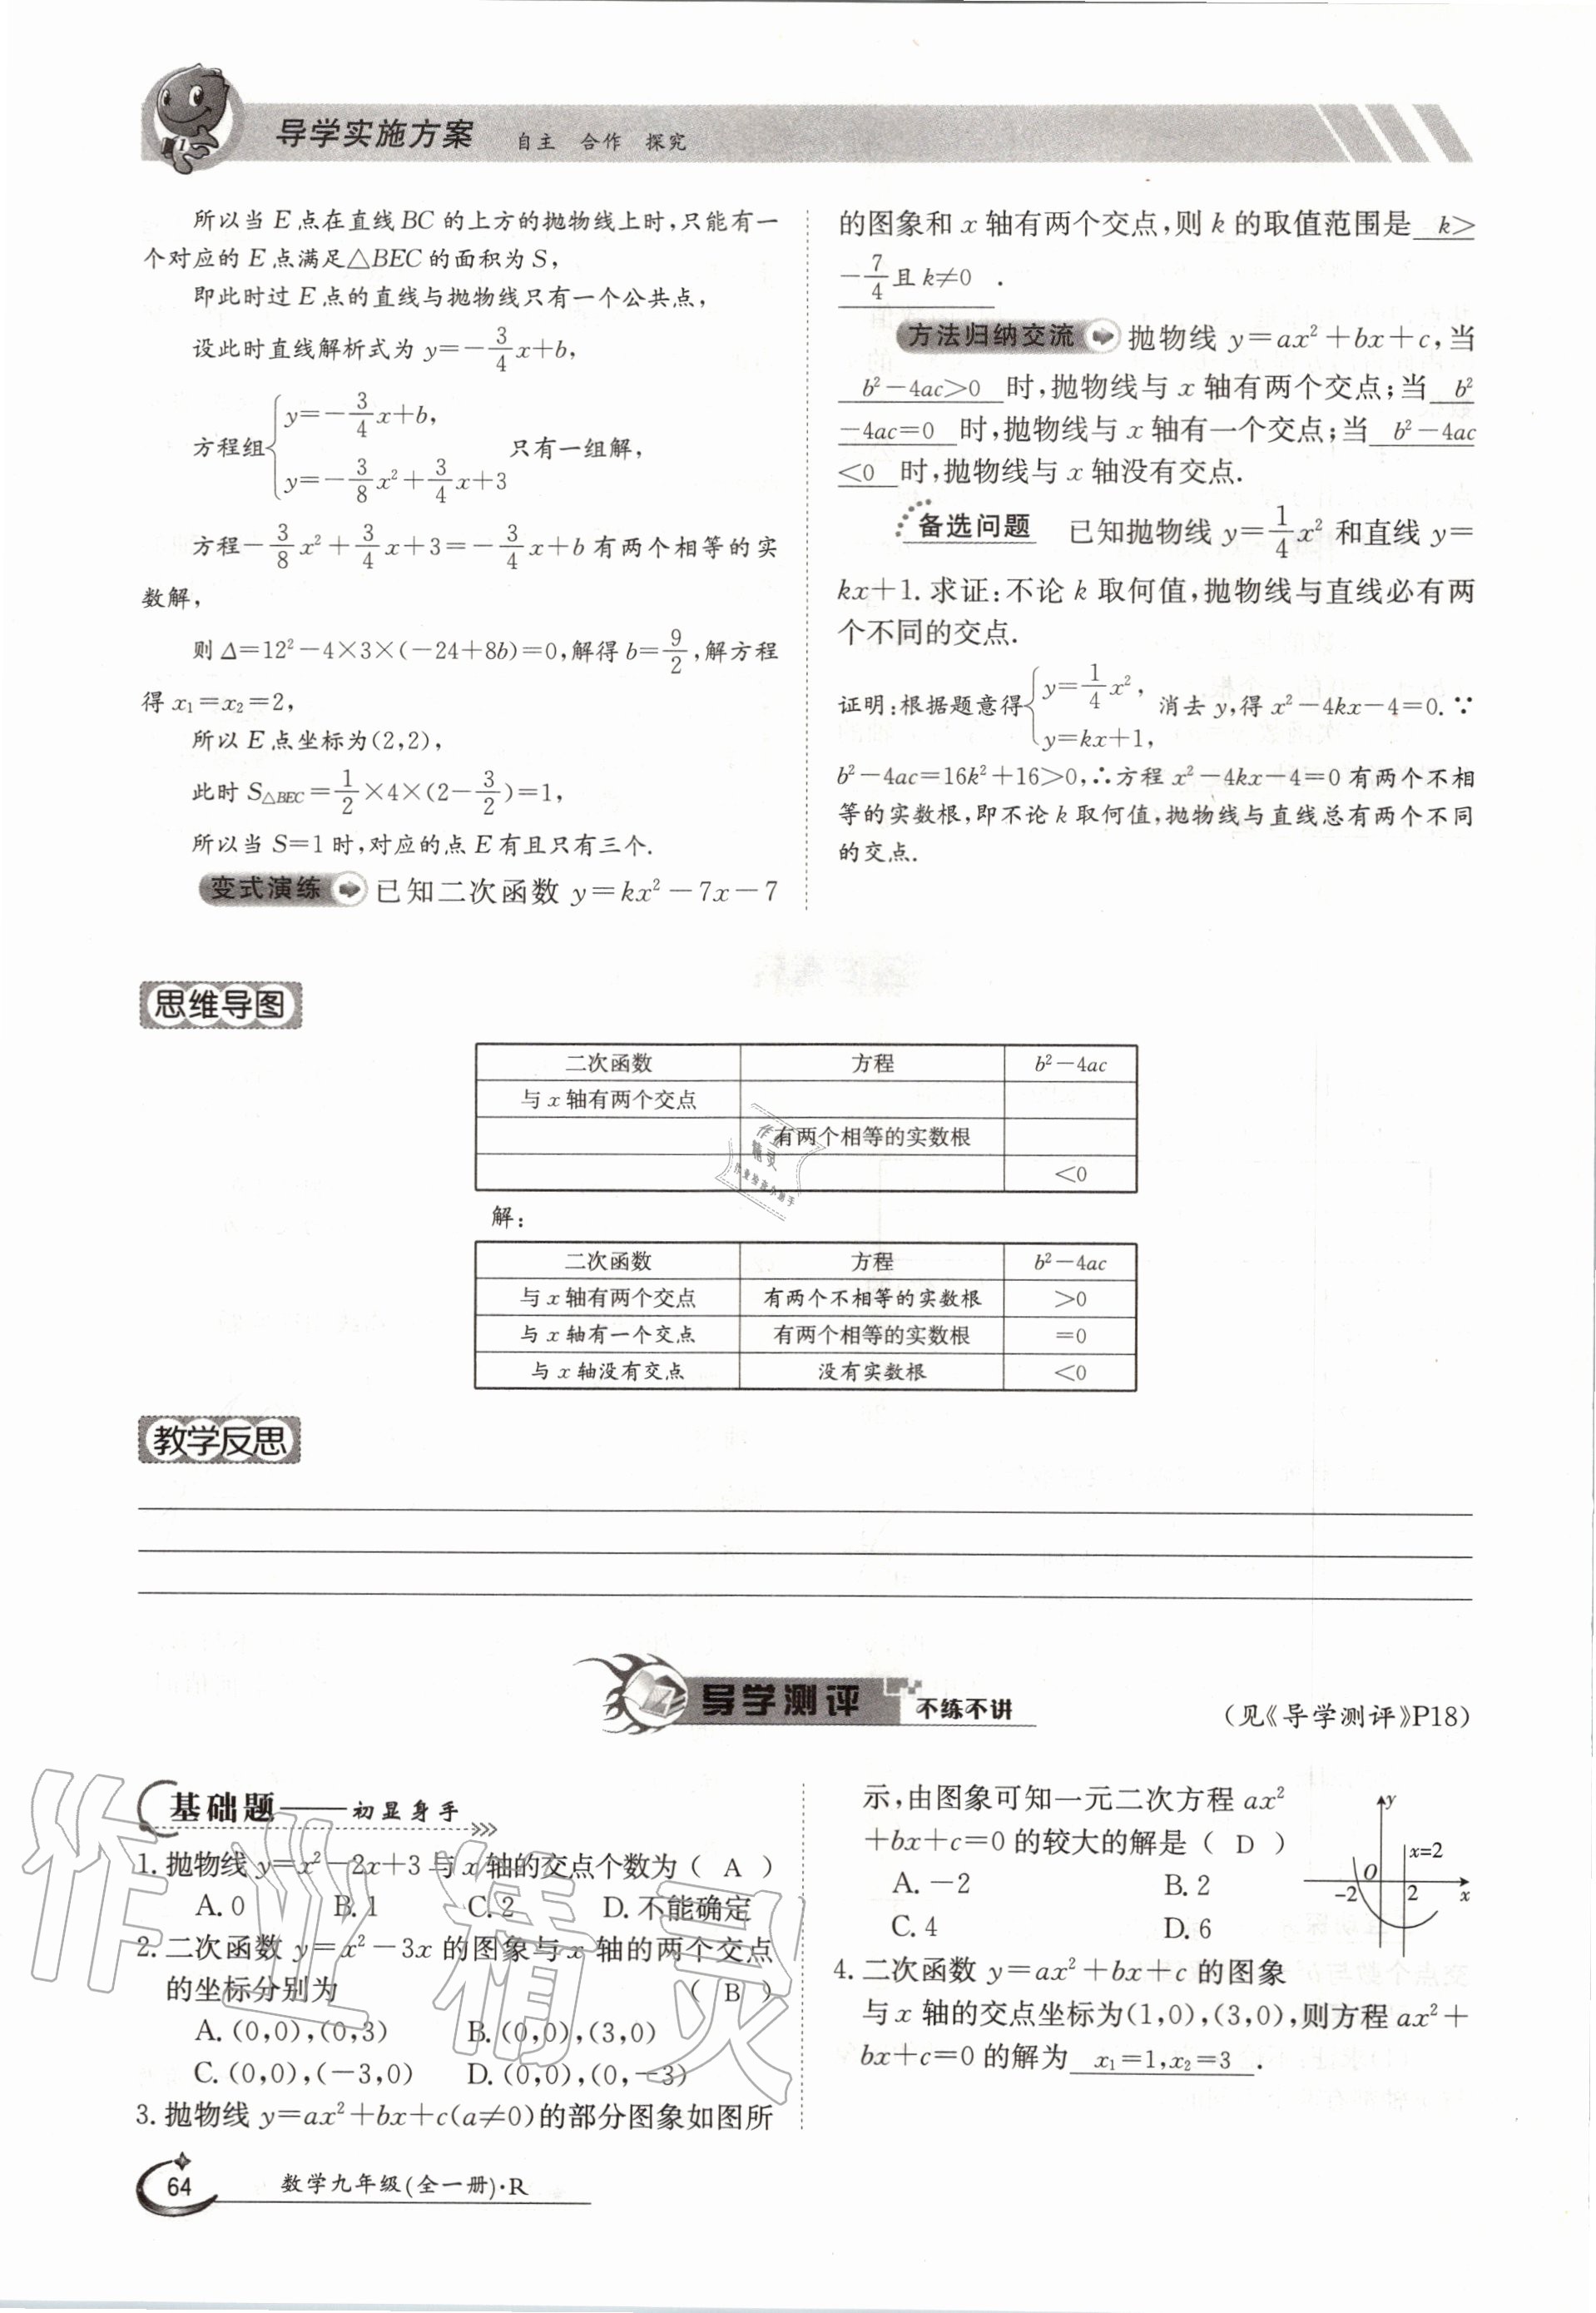 导学实施方案 自主 合作 探究
所以当 E 点在直线 BC 的上方的抛物线上时,只能有一
个对应的 E 点满足△BEC 的面积为 S,
即此时过 E 点的直线与抛物线只有一个公共点,
设此时直线解析式为 y=-3/4x+b,
方程组{y=-3/4x+b, y=-3/8x²+3/4x+3 只有一组解,
方程-3/8x²+3/4x+3=-3/4x+b 有两个相等的实
数解,
则 Δ=12²-4×3×(-24+8b)=0,解得 b=9/2,解方程
得 x₁=x₂=2,
所以 E 点坐标为(2,2),
此时 S△BEC=1/2×4×(2-3/2)=1,
所以当 S=1 时,对应的点 E 有且只有三个.
变式演练 已知二次函数 y=kx²-7x-7
的图象和 x 轴有两个交点,则 k 的取值范围是 k>
-7/4且 k≠0 .
方法归纳交流 抛物线 y=ax²+bx+c,当
b²-4ac>0 时,抛物线与 x 轴有两个交点;当 b²
-4ac=0 时,抛物线与 x 轴有一个交点;当 b²-4ac
<0 时,抛物线与 x 轴没有交点.
备选问题 已知抛物线 y=1/4x² 和直线 y=
kx+1.求证:不论 k 取何值,抛物线与直线必有两
个不同的交点.
证明:根据题意得{y=1/4x², y=kx+1, 消去 y,得 x²-4kx-4=0.∵
b²-4ac=16k²+16>0,∴方程 x²-4kx-4=0 有两个不相
等的实数根,即不论 k 取何值,抛物线与直线总有两个不同
的交点.
思维导图
二次函数 方程 b²-4ac
与 x 轴有两个交点
有两个相等的实数根
<0
作业
精灵
解:
二次函数 方程 b²-4ac
与 x 轴有两个交点 有两个不相等的实数根 >0
与 x 轴有一个交点 有两个相等的实数根 =0
与 x 轴没有交点 没有实数根 <0
教学反思
导学测评 不练不讲
(见《导学测评》P18)
基础题——初显身手
1. 抛物线 y=x²-2x+3 与 x 轴的交点个数为( A )
A. 0 B. 1 C. 2 D. 不能确定
2. 二次函数 y=x²-3x 的图象与 x 轴的两个交点
的坐标分别为 ( B )
A. (0,0),(0,3) B. (0,0),(3,0)
C. (0,0),(-3,0) D. (0,0),(0,-3)
3. 抛物线 y=ax²+bx+c(a≠0)的部分图象如图所
示,由图象可知一元二次方程 ax²
+bx+c=0 的较大的解是( D )
A. -2 B. 2
C. 4 D. 6
y
x=2
O
-2 2 x
4. 二次函数 y=ax²+bx+c 的图象
与 x 轴的交点坐标为(1,0),(3,0),则方程 ax²+
bx+c=0 的解为 x₁=1,x₂=3 .
作业精灵
64 数学九年级(全一册)·R